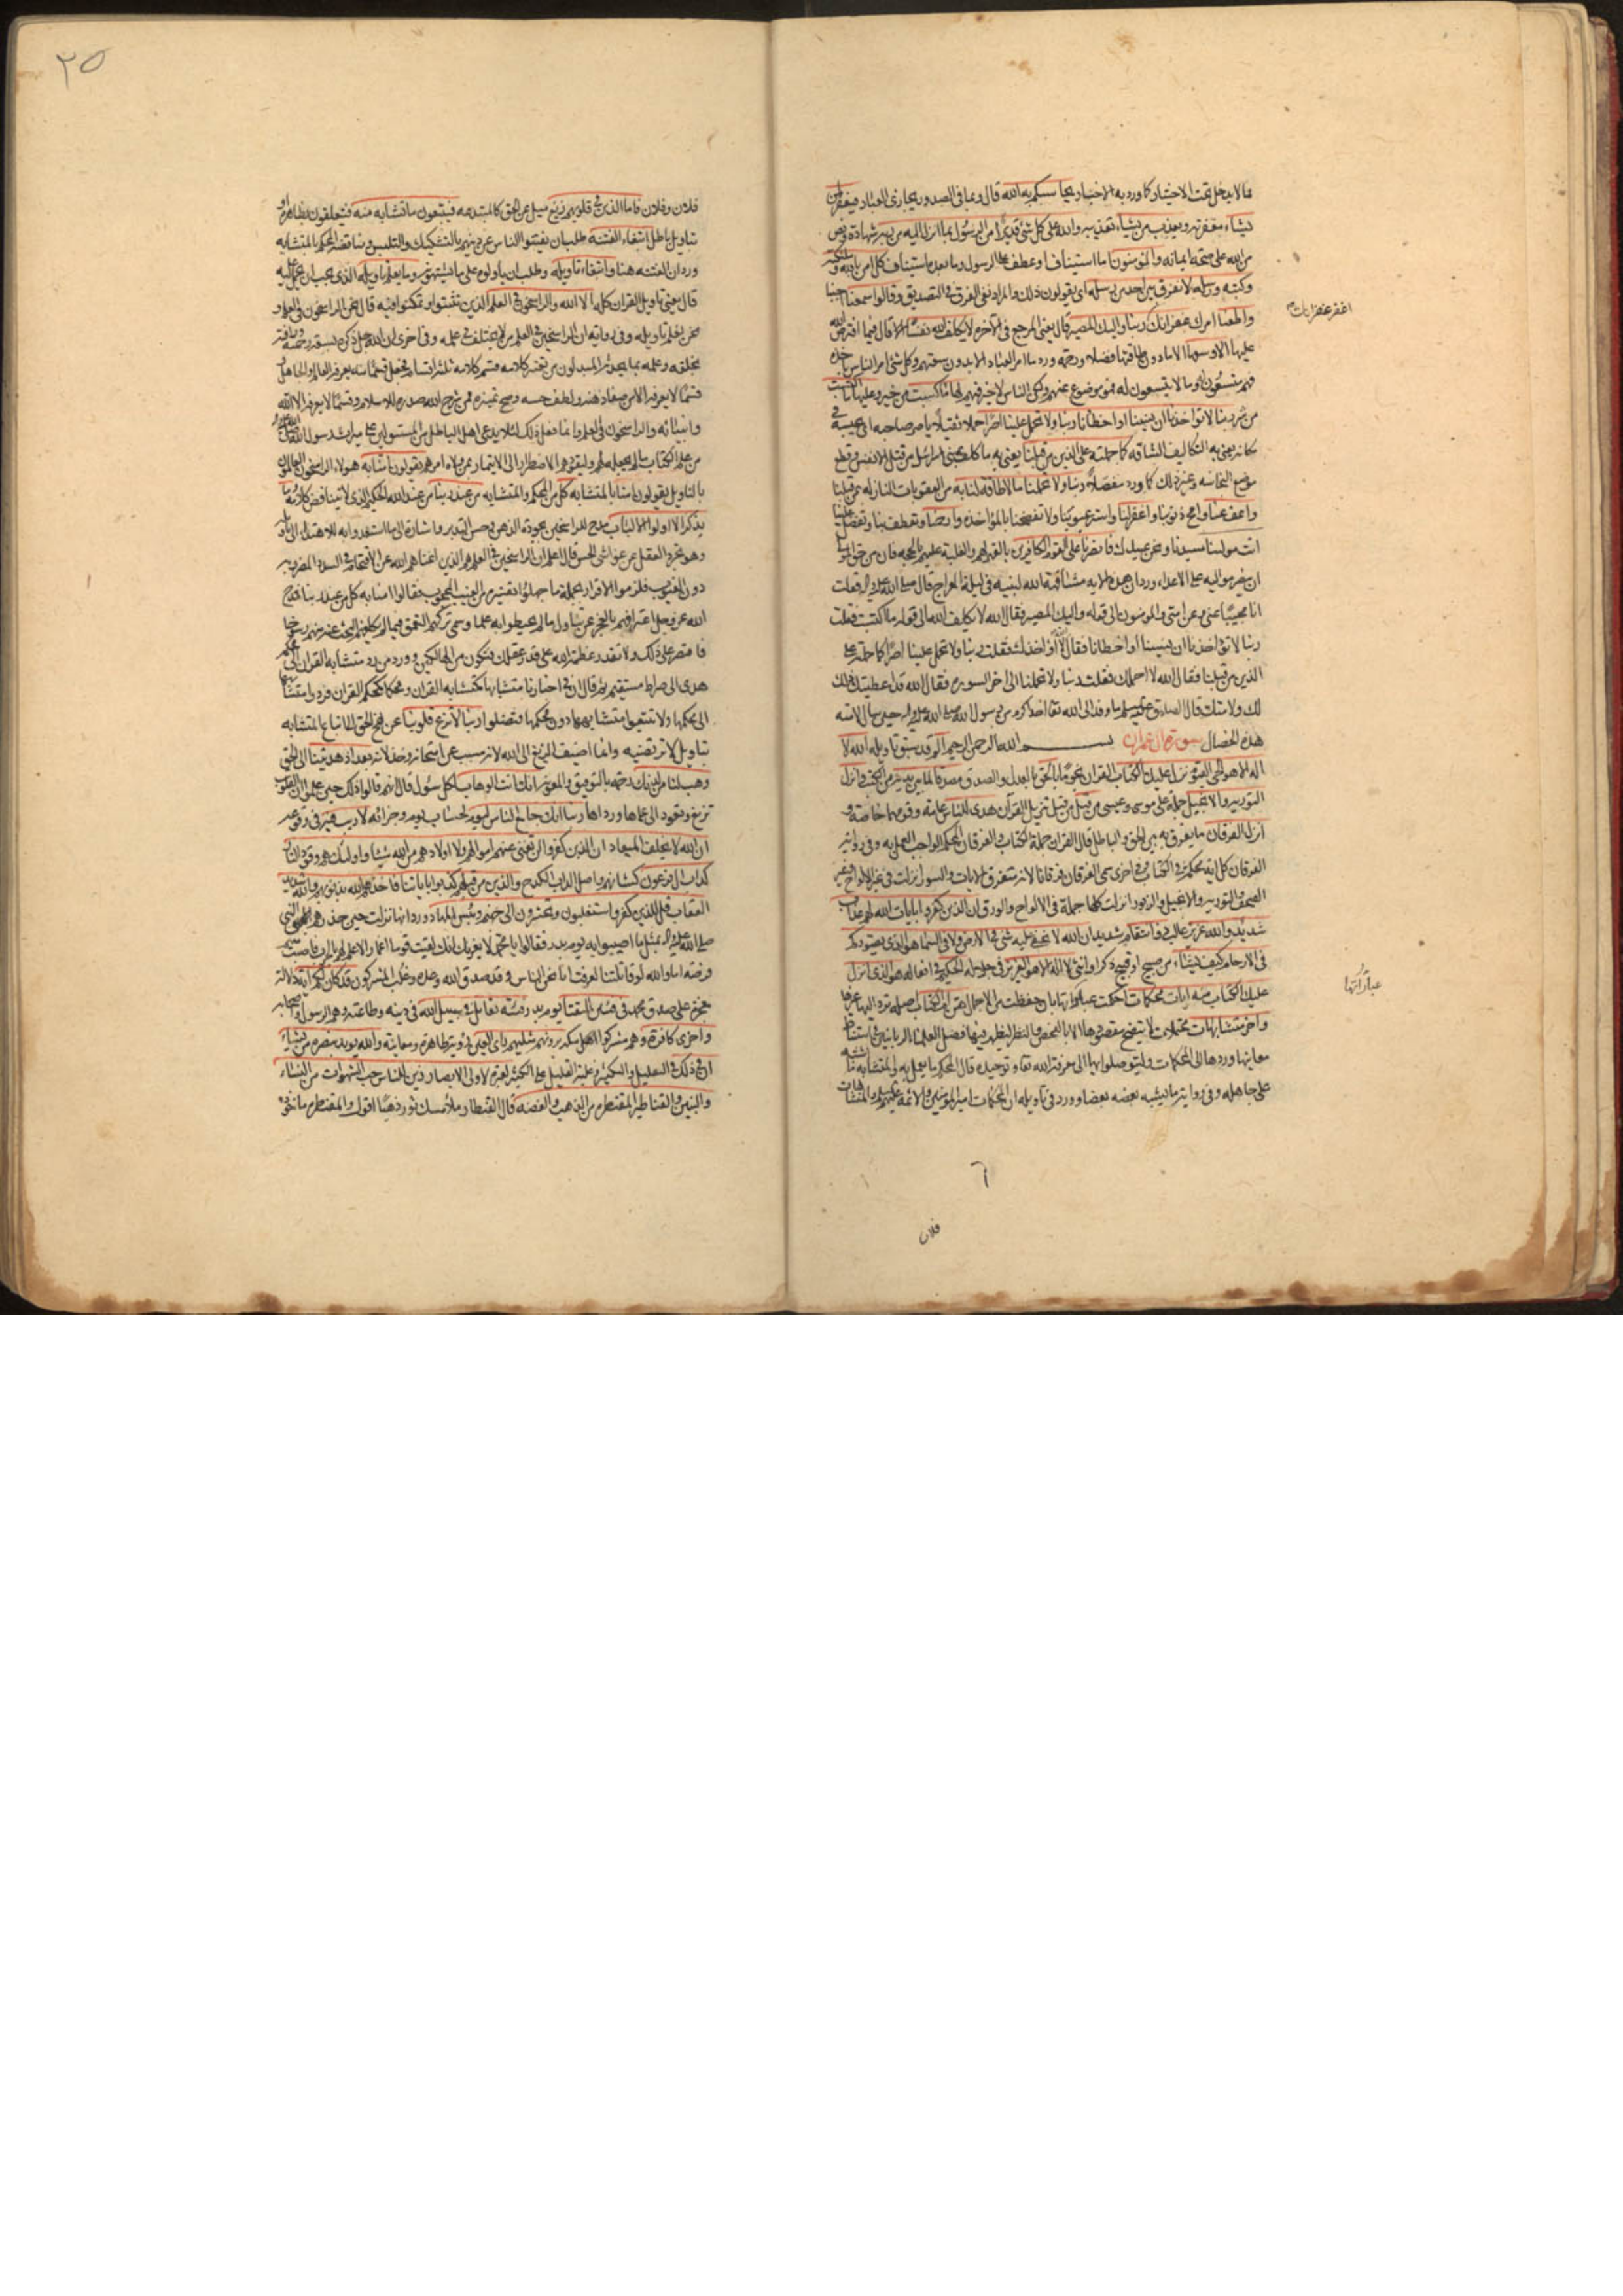 مما لا يدخل تحت الاختيار كما ورد به الاخبار يحاسبكم به الله قال وبما في الصدور يجازى العباد فيغفر لمن
يشاء مغفرته ويعذب من يشاء تعذيبه والله على كل شئ قدير امن الرسول بما انزل اليه من ربه شهادة ونص
من الله على صحة ايمانه والمؤمنون اما استيناف او عطف على الرسول وما بعده استيناف كل امن بالله وملئكته
وكتبه ورسله لا نفرق بين احد من رسله اى يقولون ذلك والمراد نفى الفرق في التصديق وقالوا سمعنا اجبنا
واطعنا امرك غفرانك ربنا واليك المصير قال يعنى المرجع في الآخرة لا يكلف الله نفسا الا قال فيما افترض الله
عليها الا وسعها الا ما دون طاقتها فضلا ورحمة ورد ما امر العباد الا بدون سعتهم وكل شئ امر الناس باخذه
فهم متسعون له وما لا يتسعون له فهو موضوع عنهم ولكن الناس لا خير فيهم لها ما كسبت من خير وعليها ما اكتسبت
من شر ربنا لا تؤاخذنا ان نسينا او اخطأنا ربنا ولا تحمل علينا اصرا حملا ثقيلا يأصر صاحبه اى يحبسه في
مكانه يعنى به التكاليف الشاقة كما حملته على الذين من قبلنا يعنى به ما كلف بنى اسرائيل من قتل الانفس وقطع
موضع النجاسة وغير ذلك كما ورد مفصلا ربنا ولا تحملنا ما لا طاقة لنا به من العقوبات النازلة بمن قبلنا
واعف عنا وامح ذنوبنا واغفر لنا واستر عيوبنا ولا تفضحنا بالمؤاخذة وارحمنا وتعطف بنا وتفضل علينا
انت مولينا سيدنا ونحن عبيدك فانصرنا على القوم الكافرين بالقهر لهم والغلبة عليهم بالحجة فان من حق المولى
ان ينصر مواليه على الاعداء ورد ان هذه الاية مشافهة الله لنبيه في ليلة المعراج قال صلى الله عليه واله فقلت
انا مجيبا عنى وعن امتى والمؤمنون الى قوله واليك المصير فقال الله لا يكلف الله الى قوله ما اكتسبت فقلت
ربنا لا تؤاخذنا ان نسينا او اخطأنا فقال الله لا اؤاخذك فقلت ربنا ولا تحمل علينا اصرا كما حملته على
الذين من قبلنا فقال الله لا احملك فقلت ربنا ولا تحملنا الى اخر السورة فقال الله قد اعطيتك ذلك
لك ولامتك قال الصادق عليه السلم ما وفد الى الله تعا احد اكرم من رسول الله صلى الله عليه واله حين سال لامته
هذه الخصال سورة ال عمران بسم الله الرحمن الرحيم الم قد سبق تاويله الله لا
اله الا هو الحى القيوم نزل عليك الكتاب القران نجوما بالحق بالعدل والصدق مصدقا لما بين يديه من الكتب وانزل
التورية والانجيل جملة على موسى وعيسى من قبل من قبل تنزيل القرآن هدى للناس عامة وقومهما خاصة و
انزل الفرقان ما يفرق به بين الحق والباطل قال القران جملة الكتاب والفرقان المحكم الواجب العمل به وفي رواية
الفرقان كل اية محكمة في الكتاب وفي اخرى سمى الفرقان فرقانا لانه متفرق الايات والسور انزلت في غير الالواح وغير
الصحف والتورية والانجيل والزبور انزلت كلها جملة في الالواح والورق ان الذين كفروا بايات الله لهم عذاب
شديد والله عزيز غالب ذو انتقام شديد ان الله لا يخفى عليه شئ في الارض ولا في السماء هو الذى يصوركم
في الارحام كيف يشاء من صبيح او قبيح ذكر او انثى لا اله الا هو العزيز في جلاله الحكيم في افعاله هو الذى انزل
عليك الكتاب منه ايات محكمات احكمت عباراتها بان حفظت من الاجمال هن ام الكتاب اصله ترد اليها غيرها
واخر متشابهات محتملات لا يتضح مقصودها الا بالفحص والنظر ليظهر فيها فضل العلماء الربانيين في استنباط
معانيها وردها الى المحكمات وليتوصلوا بها الى معرفة الله تعا وتوحيده قال المحكم ما يعمل به والمتشابه ما اشتبه
على جاهله وفي رواية ما يشبه بعضه بعضا وورد في تأويله ان المحكمات امير المؤمنين والائمة عليهم السلم والمتشابهات
فلان
عباراتها
٢٥
فلان وفلان فاما الذين في قلوبهم زيغ ميل عن الحق كالمبتدعه فيتبعون ما تشابه منه فيتعلقون بظاهره او
بتاويل باطل ابتغاء الفتنة طلب ان يفتنوا الناس عن دينهم بالتشكيك والتلبيس ومناقضة المحكم بالمتشابه
ورد ان الفتنة هنا وابتغاء تاويله وطلب ان ياولوه على ما يشتهونه وما يعلم تاويله الذى يجب ان يحمل عليه
قال يعنى تاويل القران كله الا الله والراسخون في العلم الذين تثبتوا وتمكنوا فيه قال نحن الراسخون في العلم و
نحن نعلم تاويله وفي رواية ان الراسخين في العلم من لا يختلف في علمه وفي اخرى ان الله جل ذكره بسعة رحمته ورأفته
بخلقه وعلمه بما يحدثه المبدلون من تغيير كلامه قسم كلامه ثلثة اقسام فجعل قسما منه يعرفه العالم والجاهل
قسما لا يعرفه الا من صفا ذهنه ولطف حسه وصح تميزه ممن شرح الله صدره للاسلام وقسما لا يعرفه الا الله
وانبيائه والراسخون في العلم وانما فعل ذلك لئلا يدعى اهل الباطل من المستولين على ميراث رسول الله صلى الله عليه واله
من علم الكتاب ما لم يجعله لهم وليقودهم الاضطرار الى الايتمار بمن ولاه امرهم يقولون امنا به هولاء الراسخون العالمون
بالتاويل يقولون امنا بالمتشابه كل من المحكم والمتشابه من عند ربنا من عند الله الحكيم الذى لا يتناقض كلامه وما
يذكر الا اولوا الالباب مدح للراسخين بجودة الذهن وحسن التدبر واشارة الى ما استعدوا به للاهتداء الى تاويله
وهو تجرد العقل عن غواشى الحس قال اعلم ان الراسخين في العلم هم الذين اغناهم الله عن الاقتحام في السدد المضروبة
دون الغيوب فلزموا الاقرار بجملة ما جهلوا تفسيره من الغيب المحجوب فقالوا امنا به كل من عند ربنا فمدح
الله عز وجل اعترافهم بالعجز عن تناول ما لم يحيطوا به علما وسمى تركهم التعمق فيما لم يكلفهم البحث عنه منهم رسوخا
فاقتصر على ذلك ولا تقدر عظمة الله على قدر عقلك فتكون من الهالكين وورد من رد متشابه القران الى محكمه
هدى الى صراط مستقيم ثم قال ان في اخبارنا متشابها كمتشابه القران ومحكما كمحكم القران فردوا متشابهها
الى محكمها ولا تتبعوا متشابهها دون محكمها فتضلوا ربنا لا تزغ قلوبنا عن نهج الحق الى اتباع المتشابه
بتاويل لا ترتضيه وانما اضيف الزيغ الى الله لانه مسبب عن امتحانه وخذلانه بعد اذ هديتنا الى الحق
وهب لنا من لدنك رحمة بالتوفيق والمعونة انك انت الوهاب لكل سؤل قال انهم قالوا ذلك حين علموا ان القلوب
تزيغ وتعود الى عماها ورداها ربنا انك جامع الناس ليوم لحساب يوم وجزائه لا ريب فيه في وقوعه
ان الله لا يخلف الميعاد ان الذين كفروا لن تغنى عنهم اموالهم ولا اولادهم من الله شيئا واولئك هم وقود النار
كداب ال فرعون كشانهم واصل الداب الكدح والذين من قبلهم كذبوا باياتنا فاخذهم الله بذنوبهم والله شديد
العقاب قل للذين كفروا ستغلبون وتحشرون الى جهنم وبئس المهاد ورد انها نزلت حين حذرهم النبى
صلى الله عليه واله بمثل ما اصيبوا به يوم بدر فقالوا يا محمد لا يغرنك انك لقيت قوما اغمارا لا علم لهم بالحرب فاصبت منهم
فرصة اما والله لو قاتلتنا لعرفت انا نحن الناس وقد صدق الله وعده وغلب المشركون قد كان لكم اية دلالة
معجزة على صدق محمد في فئتين التقتا يوم بدر فئة تقاتل في سبيل الله في دينه وطاعته وهم الرسول واصحابه
واخرى كافرة وهم مشركوا اهل مكه يرونهم مثليهم راى العين رؤية ظاهرة ومعاينة والله يويد بنصره من يشاء
ان في ذلك في التقليل والتكثير وغلبة القليل على الكثير لعبرة لاولى الابصار زين للناس حب الشهوات من النساء
والبنين والقناطير المقنطرة من الذهب والفضة قال القنطار ملأ مسك ثور ذهبا اقول والمقنطرة ماخوذة